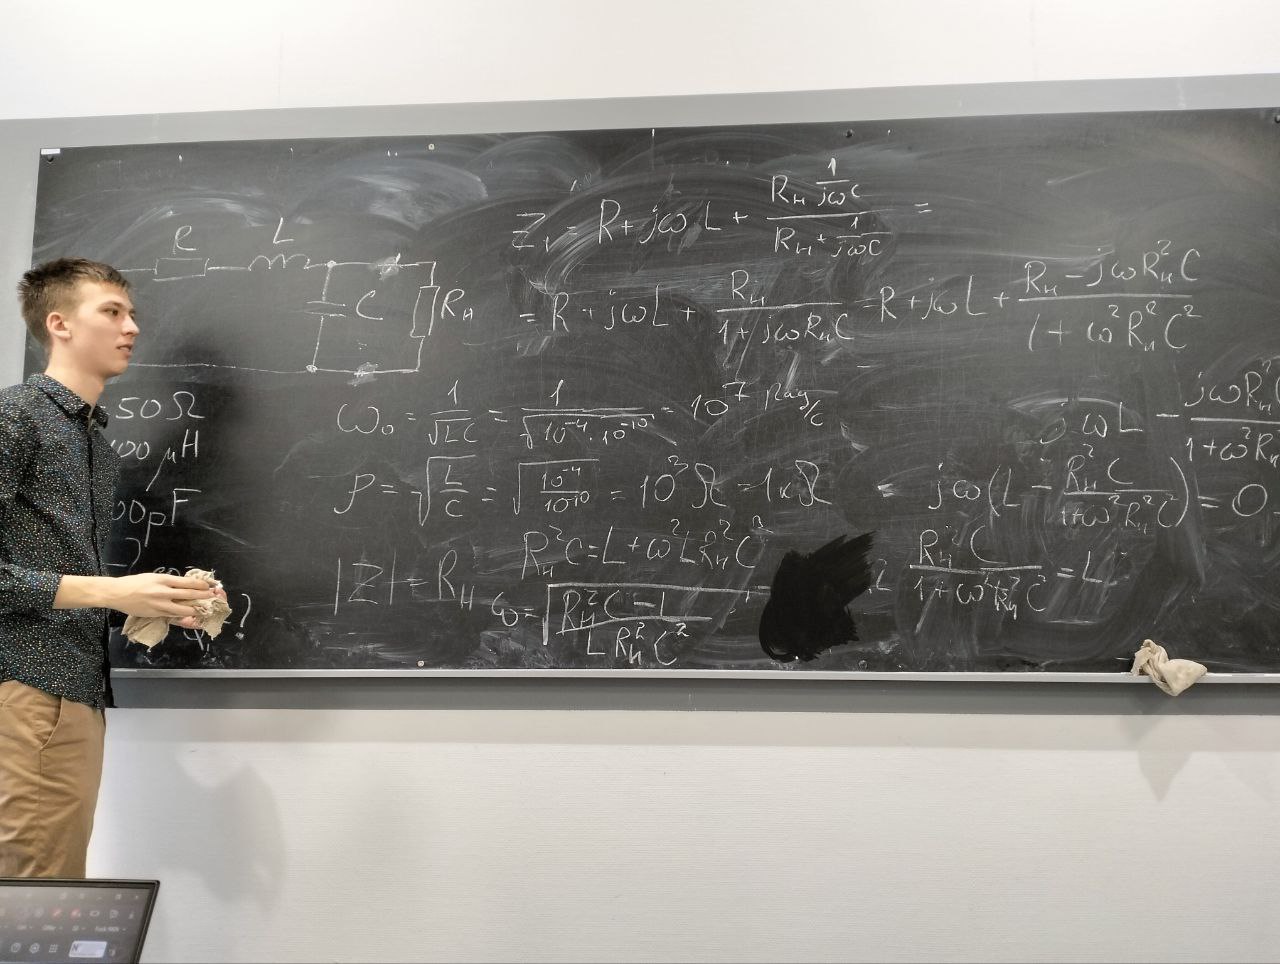 R L
C R_н
50 Ω
100 μH
00pF
?
?
Z₁ = R + jωL + (R_н 1/(jωC))/(R_н + 1/(jωC)) =
= R + jωL + R_н/(1 + jωR_нC) = R + jωL + (R_н − jωR_н²C)/(1 + ω²R_н²C²)
ω₀ = 1/√(LC) = 1/√(10⁻⁴·10⁻¹⁰) = 10⁷ рад/с
ρ = √(L/C) = √(10⁻⁴/10⁻¹⁰) = 10³ Ω = 1кΩ
|Z| = R_н
R_н²C = L + ω²LR_н²C²
ω = √((R_н²C − L)/(LR_н²C²))
jωL − jωR_н²/(1 + ω²R_н
jω(L − R_н²C/(1 + ω²R_н²C²)) = 0
R_н²C/(1 + ω²R_н²C²) = L